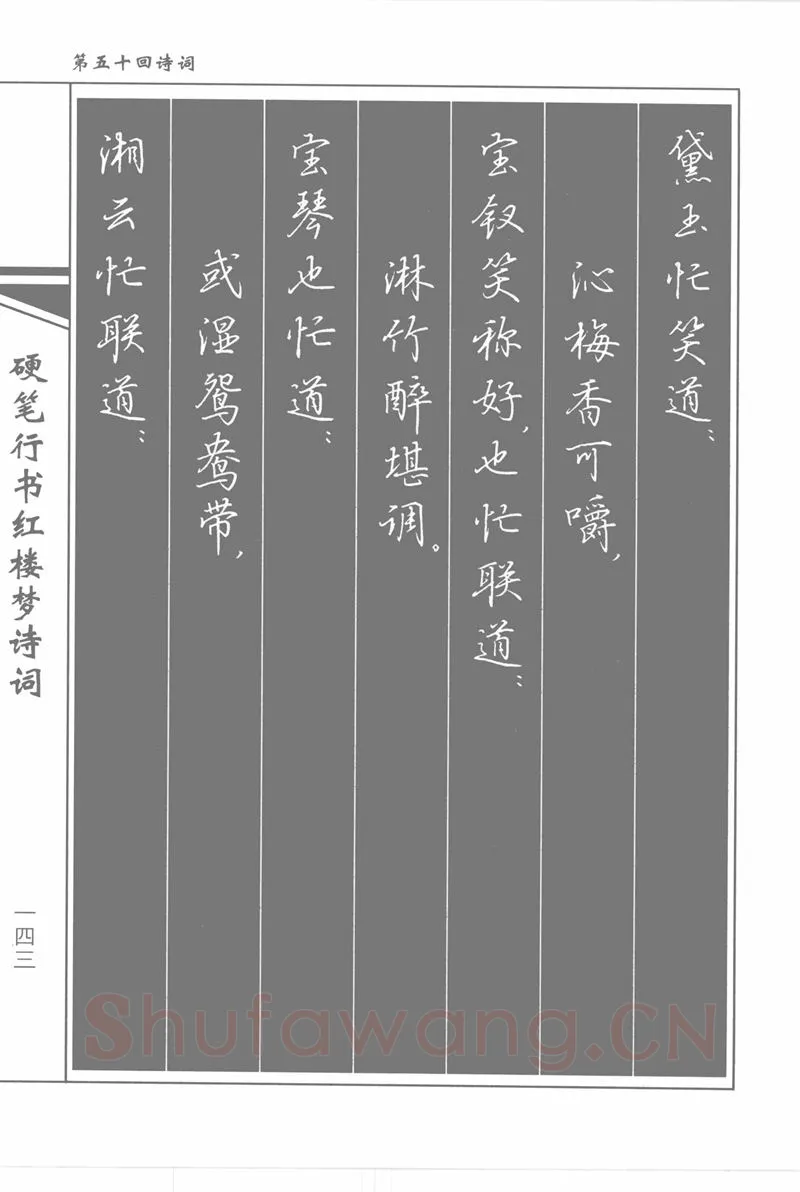 第五十回诗词
黛玉忙笑道：
沁梅香可嚼，
宝钗笑称好，也忙联道：
淋竹醉堪调。
宝琴也忙道：
或湿鸳鸯带，
湘云忙联道：
硬笔行书红楼梦诗词
一四三
Shufawang.CN